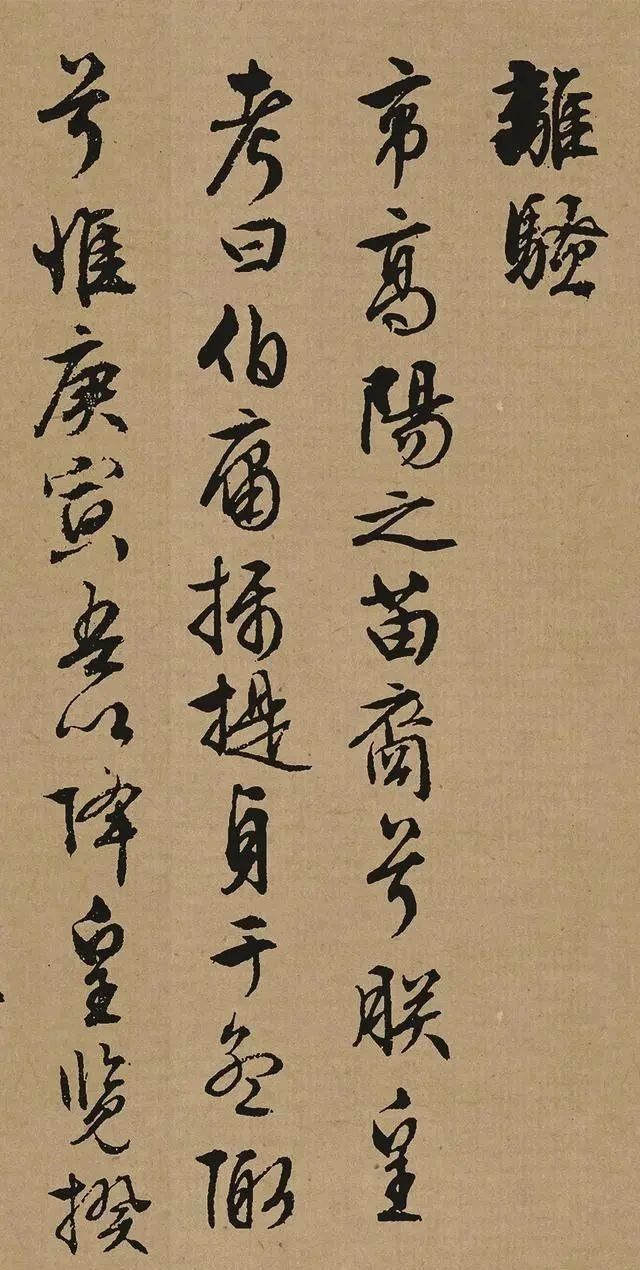 離騷
帝高陽之苗裔兮朕皇
考曰伯庸攝提貞于孟陬
兮惟庚寅吾以降皇覽揆